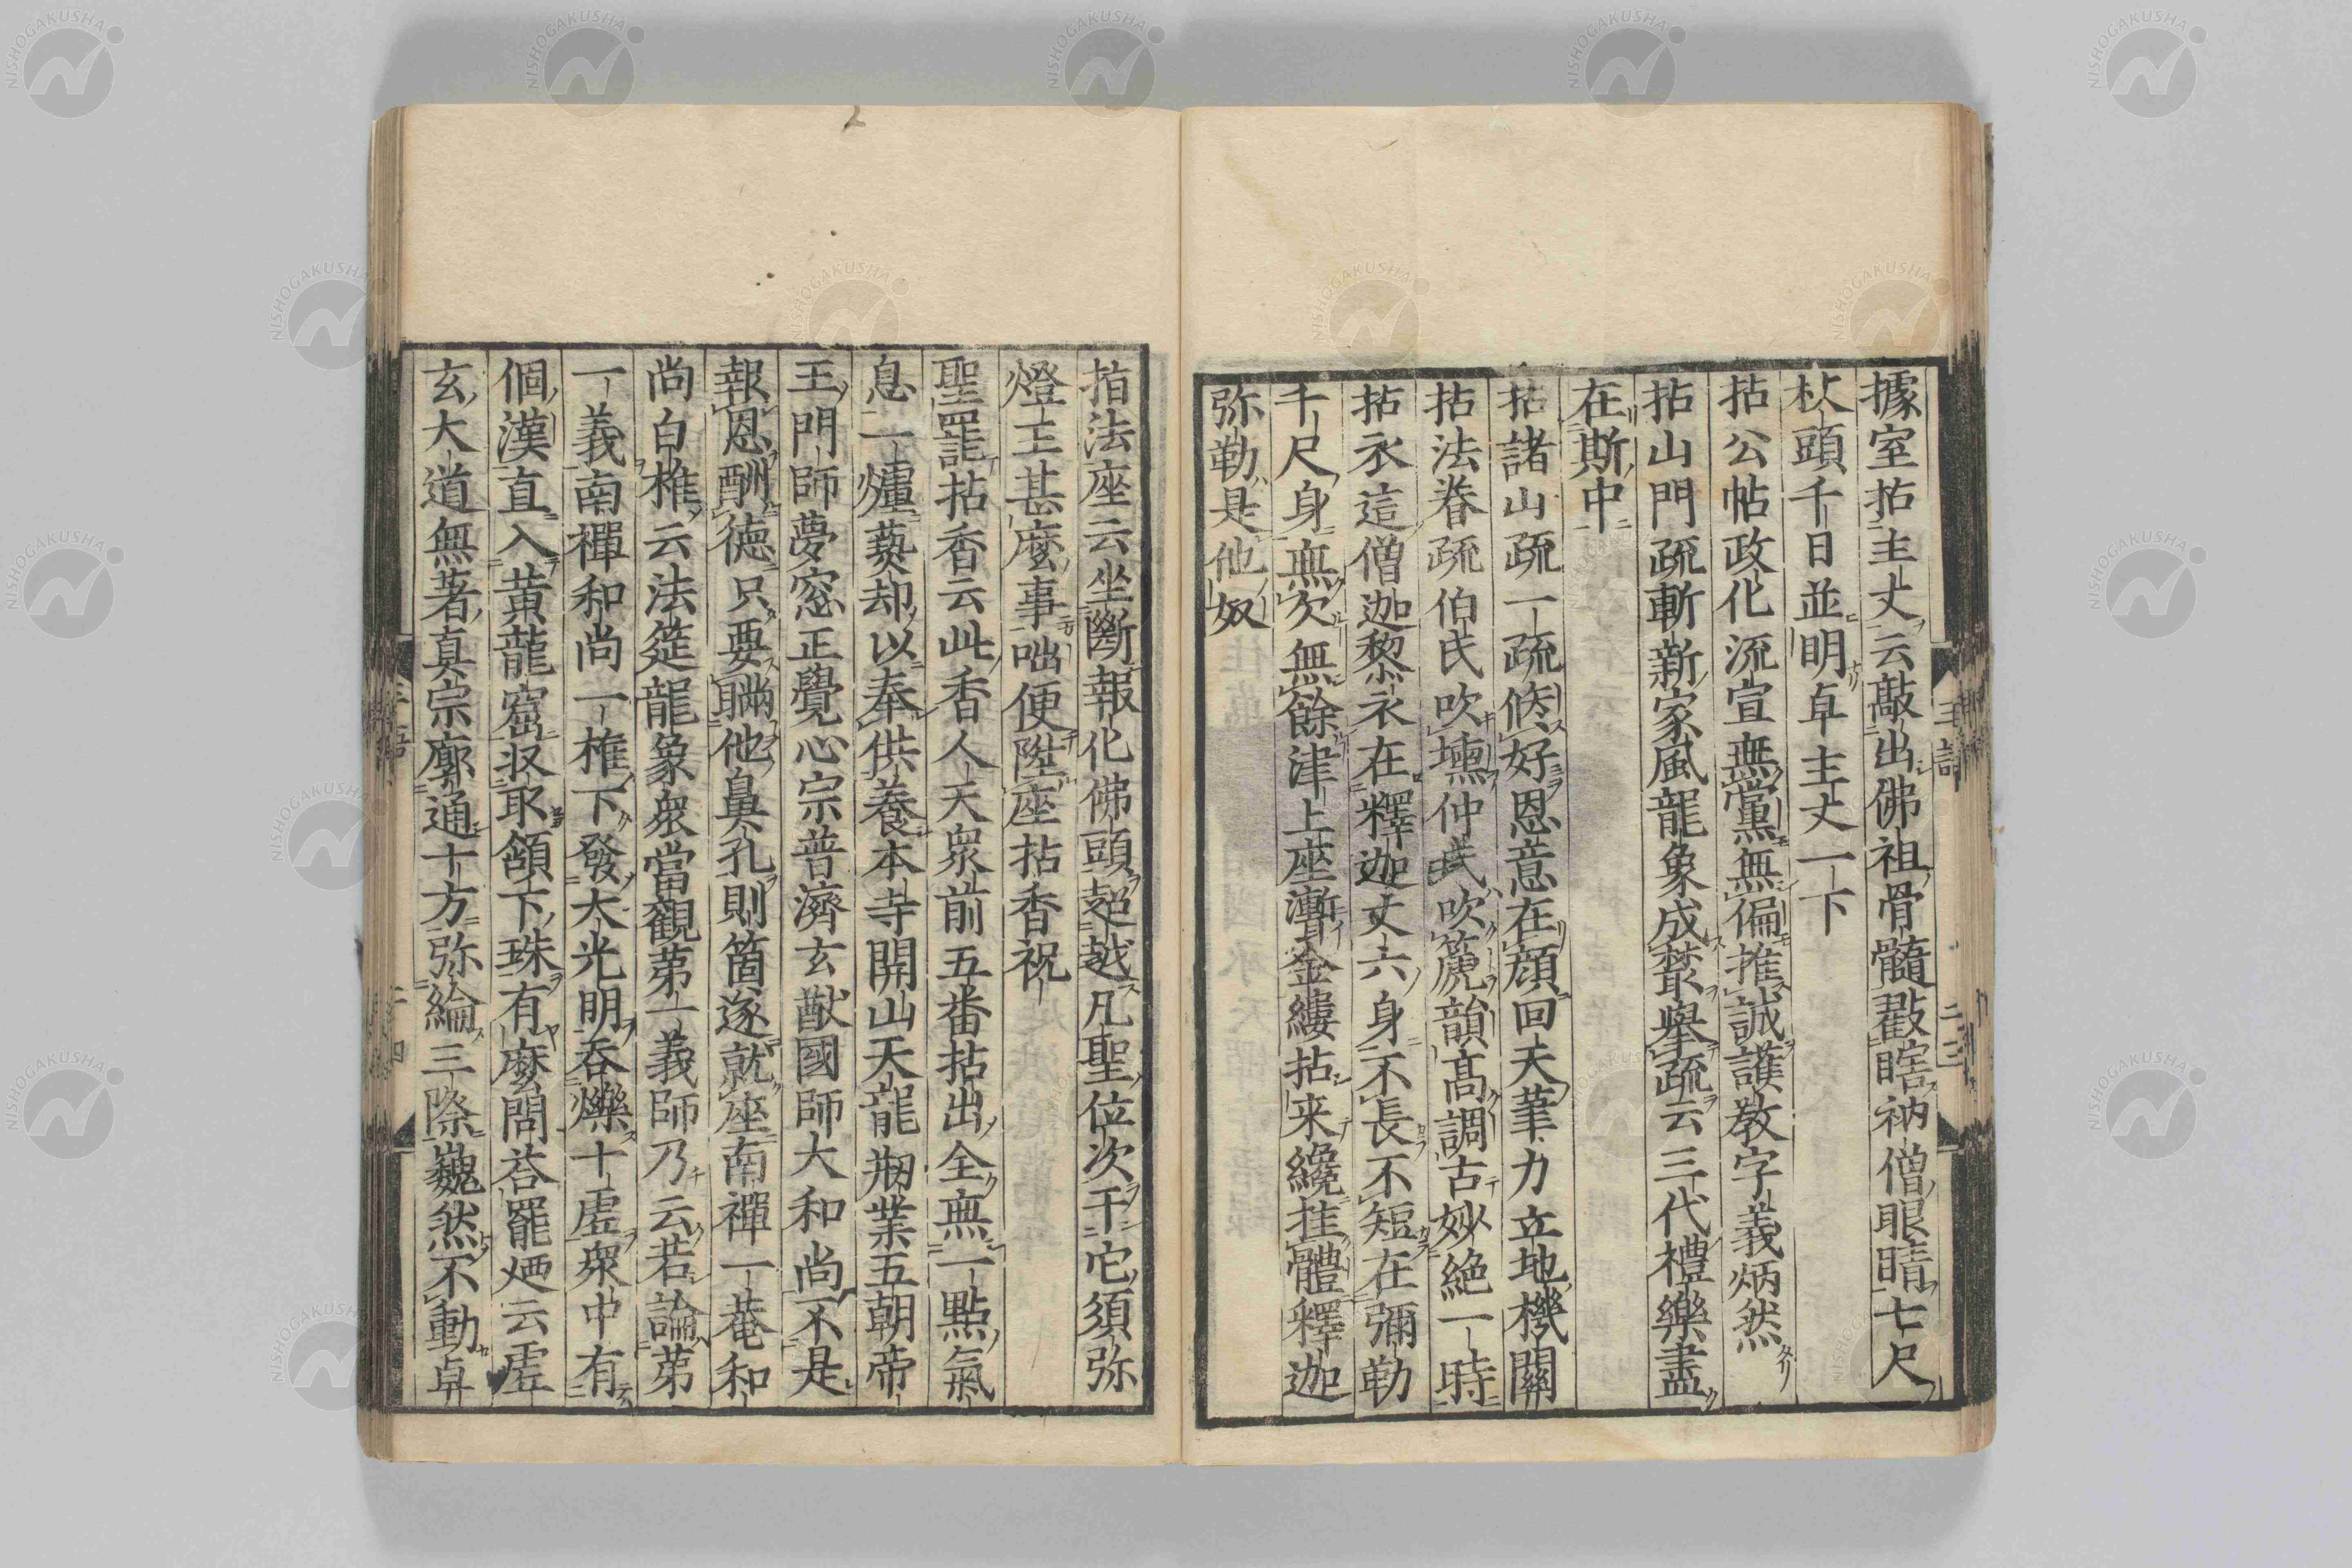 據室拈主丈云敲出佛祖骨髓戳瞎衲僧眼睛七尺
杖頭千日並明卓主丈一下
拈公帖政化流宣無黨無偏推誠護教字義炳然
拈山門疏斬新家風龍象成叢舉疏云三代禮樂盡
在斯中
拈諸山疏一疏倏好恩意在顔回天筆力立地機關
拈法眷疏伯氏吹壎仲氏吹篪韻高調古妙絶一時
拈衣這僧迦黎衣在釋迦丈六身不長不短在彌勒
千尺身無欠無餘津上座漸金縷拈来纔挂體釋迦
弥勒是他奴
指法座云坐斷報化佛頭超越凡聖位次干它須弥
燈王甚麼事咄便陞座拈香祝
聖罷拈香云此香人天衆前五番拈出全無一點氣
息一爐爇却以奉供養本寺開山天龍剏業五朝帝
王門師夢窓正覺心宗普濟玄猷國師大和尚不是
報恩酬德只要瞞他鼻孔則箇逐就座南禪一菴和
尚白椎云法筵龍象衆當觀第一義師乃云若論第
一義南禪和尚一椎下發大光明呑爍十虛衆中有
個漢直入黄龍窟収取頷下珠有麼問荅罷廼云虛
玄大道無著真宗廓通十方弥綸三際巍然不動卓